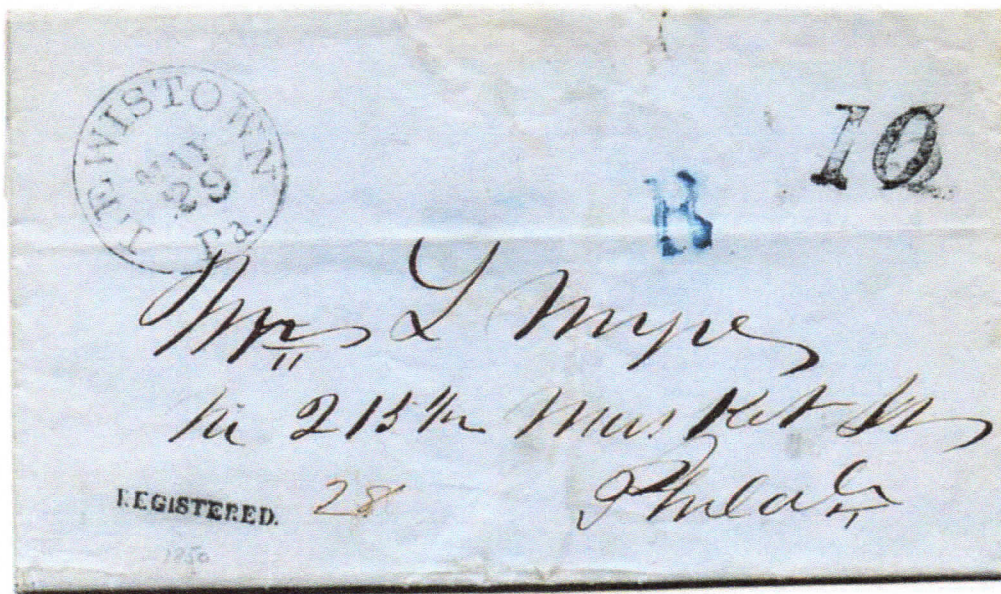 LEWISTOWN
MAY
29
Pa.
10
R
L
No 215 1/2 Market St
Philada
REGISTERED.
28
1850